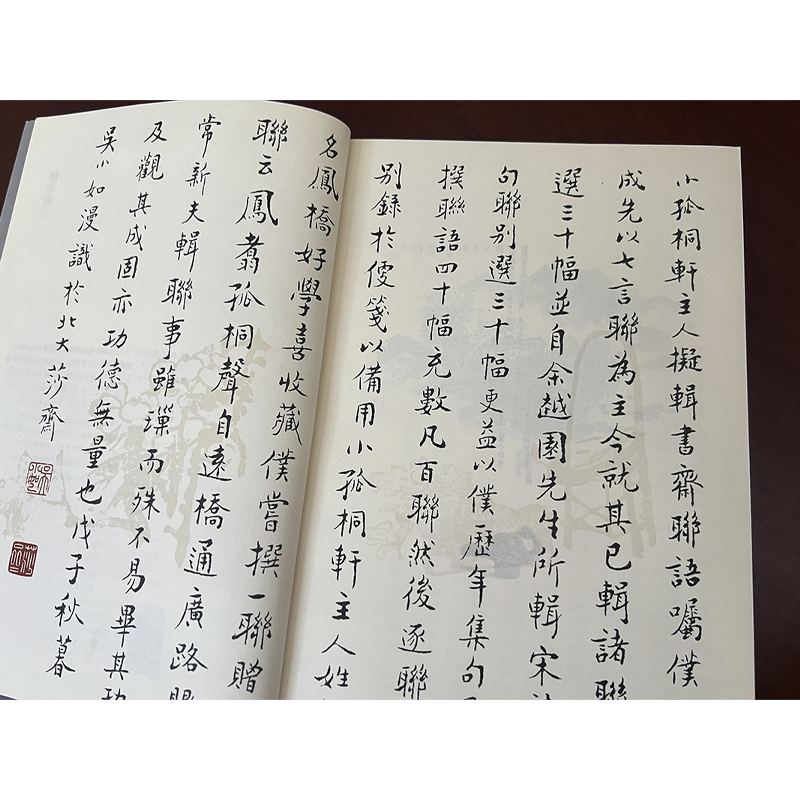 小孤桐軒主人擬輯書齋聯語囑僕
成先以七言聯為主今就其已輯諸聯
選三十幅並自余越園先生所輯宋
句聯別選三十幅更益以僕歷年集句
撰聯語四十幅充數凡百聯然後逐聯
別錄於便箋以備用小孤桐軒主人姓
名鳳橋好學喜收藏僕嘗撰一聯贈
聯云鳳翥孤桐聲自遠橋通廣路眼
常新夫輯聯事雖璅而殊不易畢其功
及觀其成固亦功德無量也戊子秋暮
吳小如漫識於北大莎齋